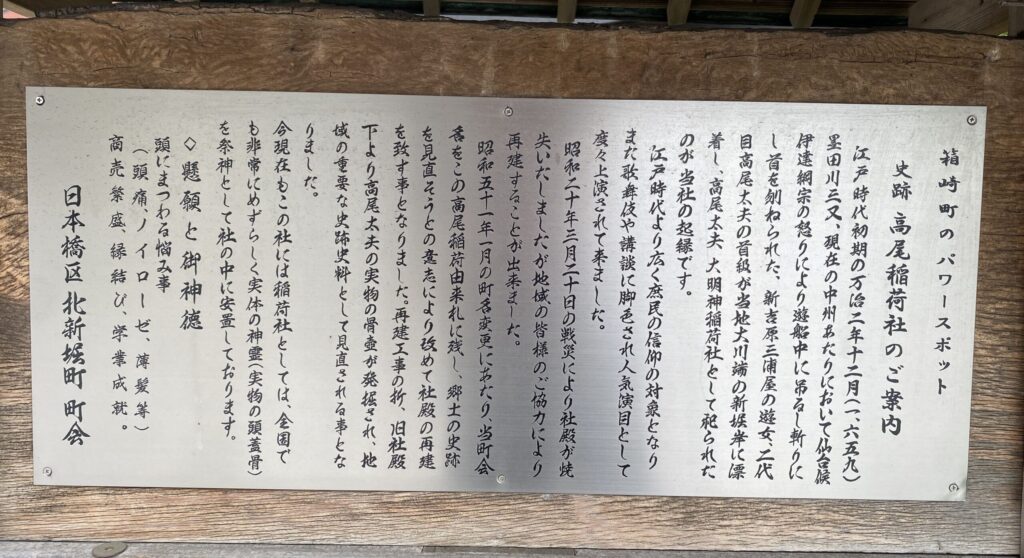 箱崎町のパワースポット
史跡 高尾稲荷社のご案内
江戸時代初期の万治二年十二月(一、六五九)
墨田川三又、現在の中州あたりにおいて仙台候
伊達綱宗の怒りにより遊船中に吊るし斬りに
し首を刎ねられた、新吉原三浦屋の遊女、二代
目高尾太夫の首級が当地大川端の新堀岸に漂
着し、高尾太夫、大明神稲荷社として祀られた
のが当社の起縁です。
江戸時代より広く庶民の信仰の対象となり
また歌舞伎や講談に脚色され人気演目として
度々上演されて来ました。
昭和二十年三月二十日の戦災により社殿が焼
失いたしましたが地域の皆様のご協力により
再建することが出来ました。
昭和五十一年一月の町名変更にあたり、当町会
名をこの高尾稲荷由来札に残し、郷土の史跡
を見直そうとの意志により改めて社殿の再建
を致す事となりました。再建工事の折、旧社殿
下より高尾太夫の実物の骨壷が発掘され、地
域の重要な史跡史料として見直される事とな
りました。
今現在もこの社には稲荷社としては、全国で
も非常にめずらしく実体の神霊(実物の頭蓋骨)
を祭神として社の中に安置しております。
◇懸願と御神徳
頭にまつわる悩み事
(頭痛、ノイローゼ、薄髪等)
商売繁盛、縁結び、学業成就。
日本橋区 北新堀町 町会